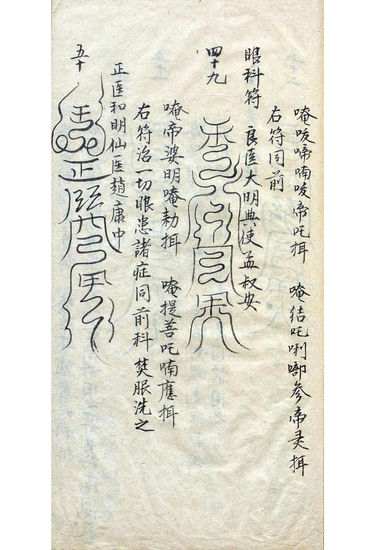 唵咹啼喃咹帝吒揖　唵结吒唎唧參帝灵揖
右符同前
眼科符　良医大明典使孟叔安
四十九
唵帝婆明唵勅揖　唵提菩吒喃應揖
右符治一切眼患諸症同前科　焚服洗之
正医和明仙医趙康中
五十